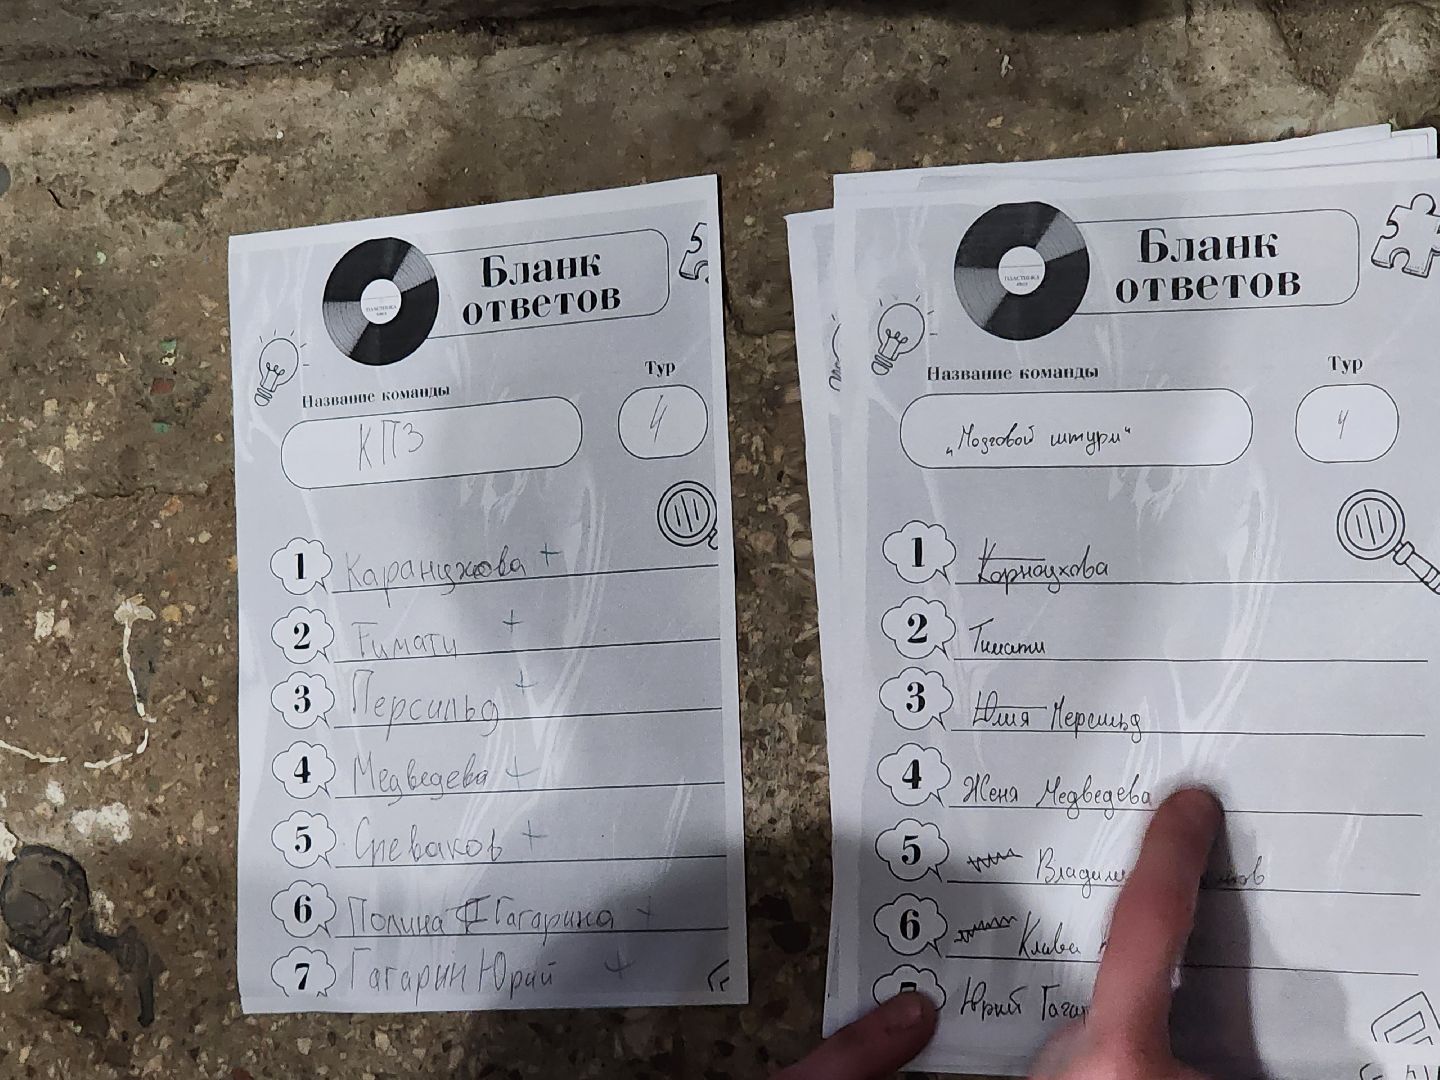 Бланк
ответов
ПЛАСТИНКА
Название команды
Тур
КПЗ
4
1 Каранухова +
2 Тимати +
3 Персильд +
4 Медведева +
5 Спеваков +
6 Полина Гагарина +
7 Гагарин Юрий +
Бланк
ответов
ПЛАСТИНКА
Название команды
Тур
„Мозговой штурм“
4
1 Карнаухова
2 Тимати
3 Юлия Персильд
4 Женя Медведева
5
6 Клава
7 Юрий